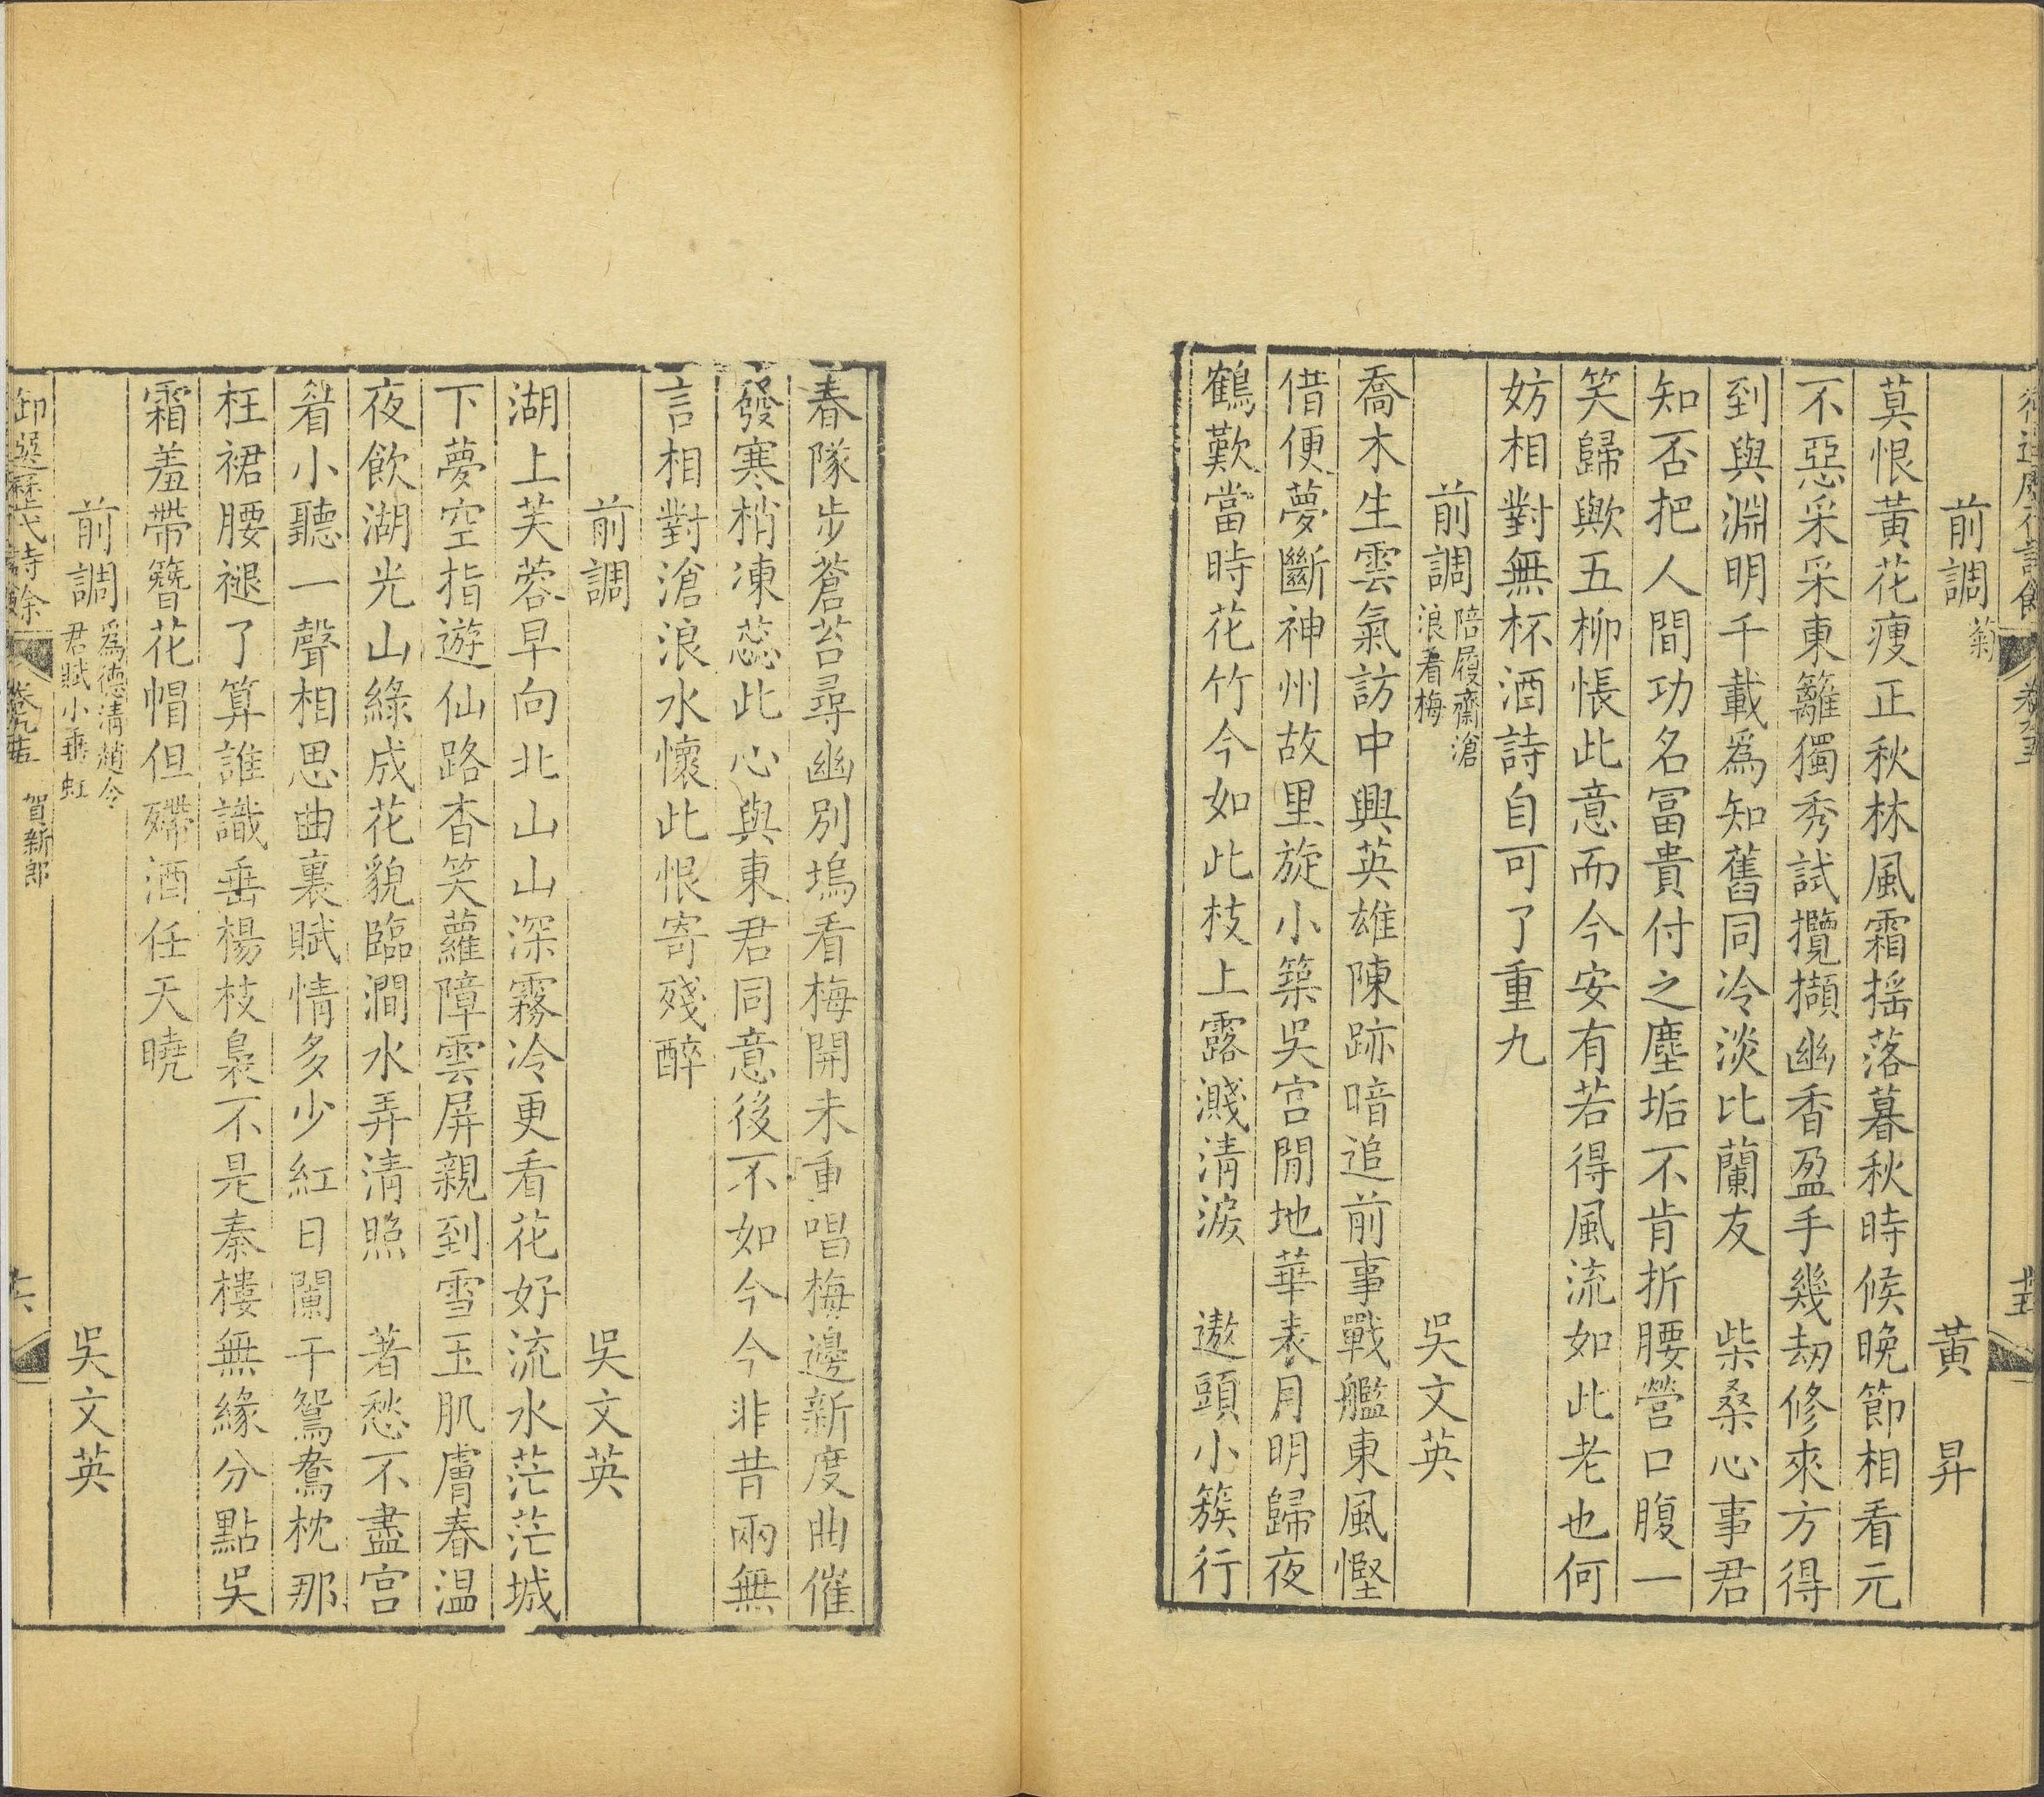 前調菊 黃昇
莫恨黃花瘦正秋林風霜揺落暮秋時候晚節相看元
不惡采采東籬獨秀試攬擷幽香盈手幾劫修來方得
到與淵明千載爲知舊同冷淡比蘭友 柴桑心事君
知否把人間功名冨貴付之塵垢不肯折腰營口腹一
笑歸歟五柳悵此意而今安有若得風流如此老也何
妨相對無杯酒詩自可了重九
前調陪履齋滄浪看梅 吳文英
喬木生雲氣訪中興英雄陳跡暗追前事戰艦東風慳
借便夢斷神州故里旋小築吳宫閒地華表月明歸夜
鶴歎當時花竹今如此枝上露濺淸淚 遨頭小簇行
春隊步蒼苔尋幽別塢看梅開未重唱梅邊新度曲催
發寒梢凍蕊此心與東君同意後不如今今非昔兩無
言相對滄浪水懷此恨寄殘醉
前調 吳文英
湖上芙蓉早向北山山深霧冷更看花好流水茫茫城
下夢空指遊仙路杳笑蘿障雲屏親到雪玉肌膚春温
夜飲湖光山綠成花貌臨澗水弄淸照 著愁不盡宫
眉小聽一聲相思曲裏賦情多少紅日闌干鴛鴦枕那
枉裙腰褪了算誰識垂楊枝裊不是秦樓無緣分點吳
霜羞帶簪花帽但殢酒任天曉
前調爲德淸趙令君賦小垂虹 吳文英
御選歷代詩餘 卷九十五 賀新郎